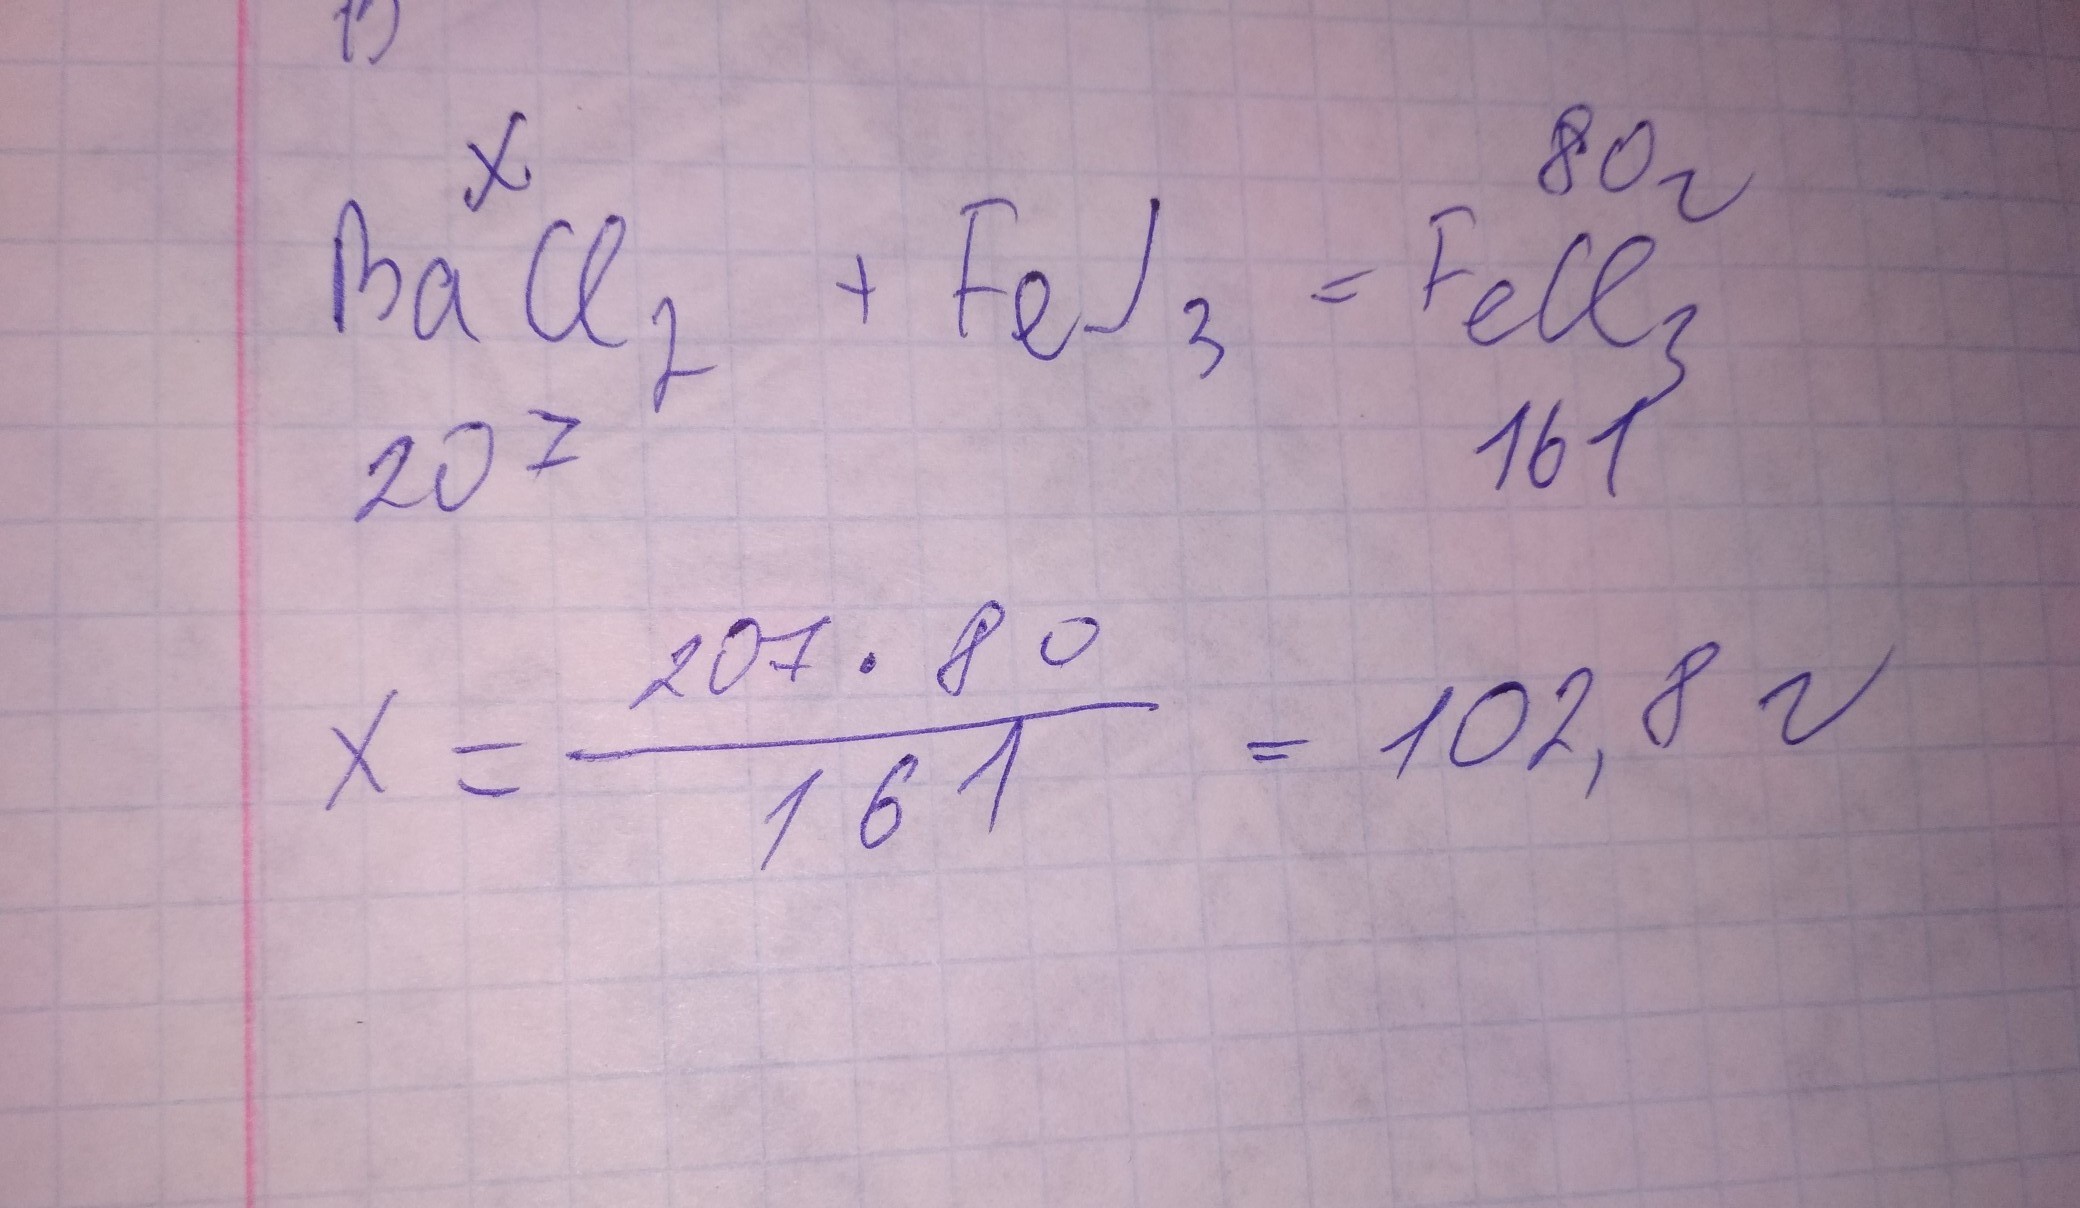 х
80г
BaCl₂ + FeJ₃ = FeCl₃
207 161
x = 207 · 80 / 161 = 102,8 г